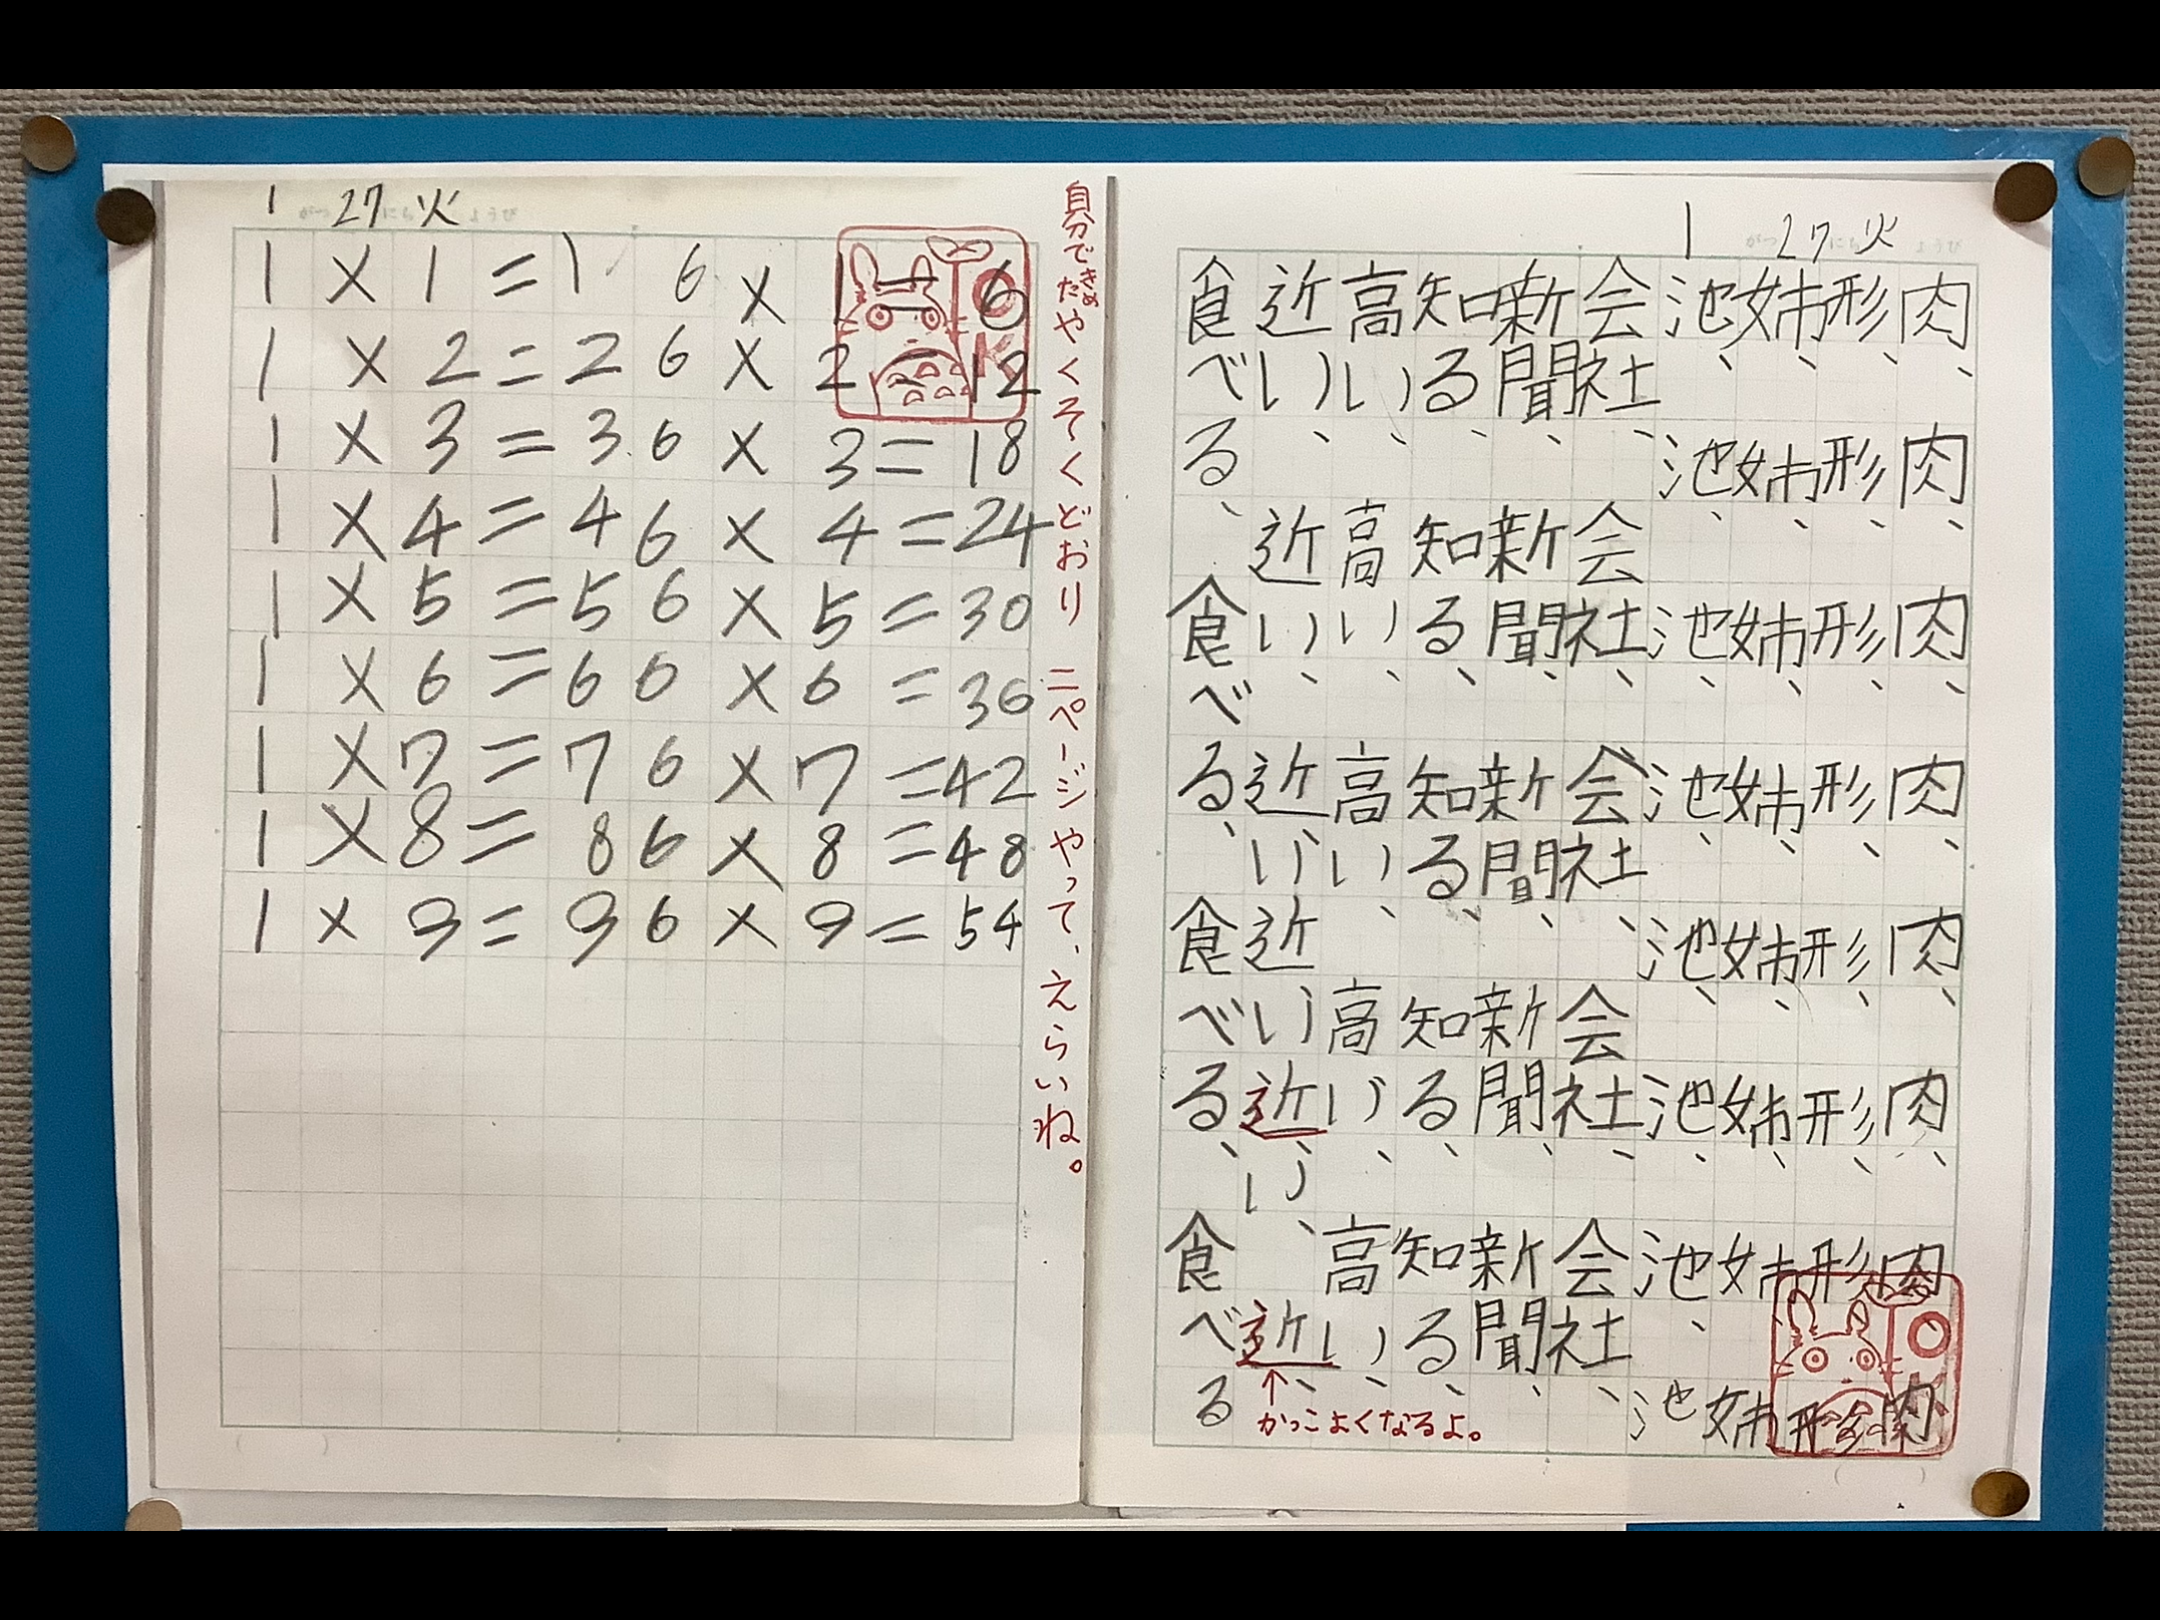 1がつ27にち火ようび
1×1=1 6×1=6
1×2=2 6×2=12
1×3=3 6×3=18
1×4=4 6×4=24
1×5=5 6×5=30
1×6=6 6×6=36
1×7=7 6×7=42
1×8=8 6×8=48
1×9=9 6×9=54
OK
自分できめたやくそくどおり 二ページやって、えらいね。
1がつ27にち火ようび
肉、肉、肉、肉、肉、肉、肉肉
形、形、形、形、形、形、形形
姉、姉、姉、姉、姉、姉、姉姉
池、池、池、池、池、池、池、池
会社、会社、会社、会社、会社、
新聞、新聞、新聞、新聞、新聞、
知る、知る、知る、知る、知る、
高い、高い、高い、高い、高い、
近い、近い、近い近い近い、近い、
食べる、食べる、食べる、食べる
かっこよくなるよ。
OK